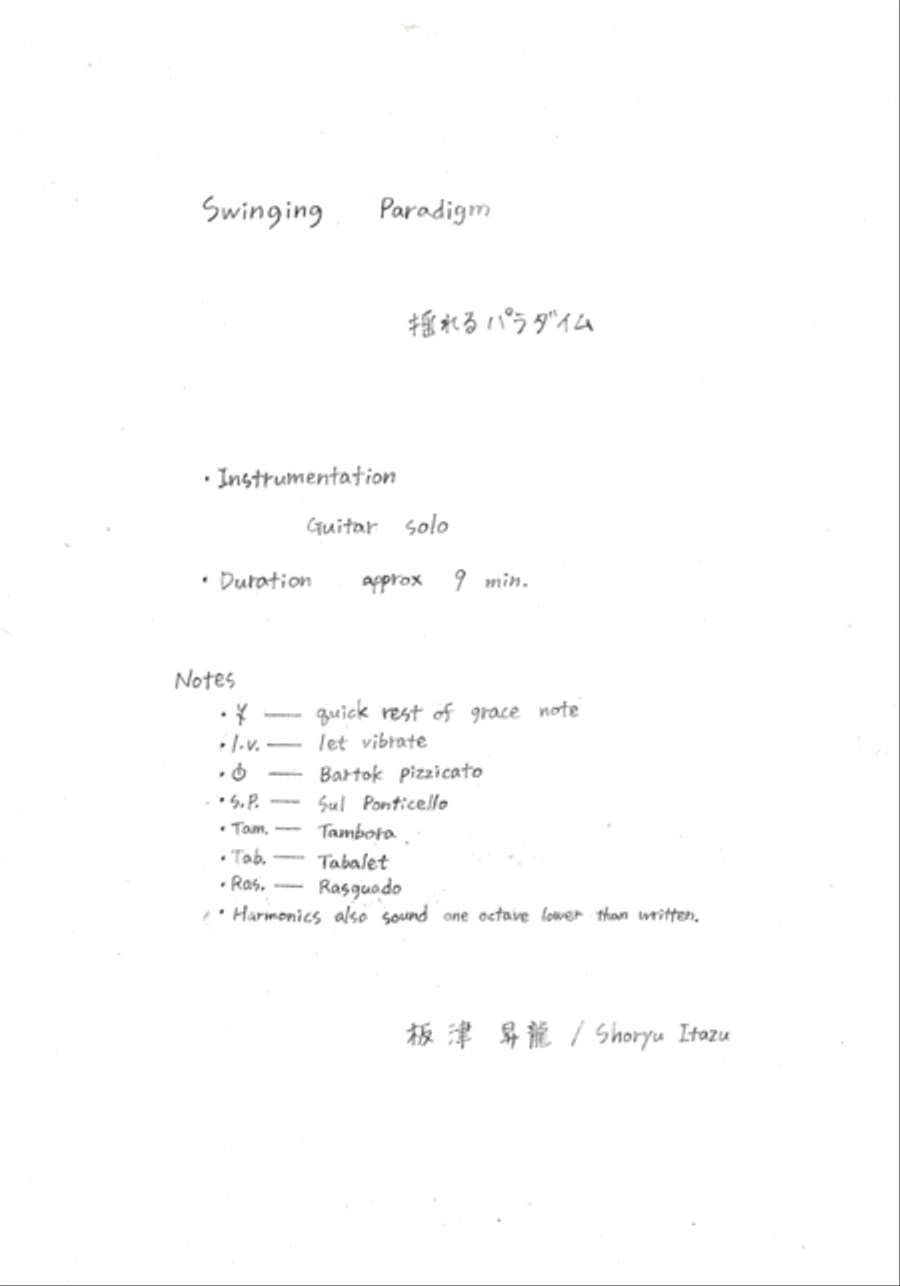 Swinging Paradigm
揺れるパラダイム
・Instrumentation
Guitar solo
・Duration approx 9 min.
Notes
・ — quick rest of grace note
・l.v. — let vibrate
・ — Bartok pizzicato
・S.P. — Sul Ponticello
・Tam. — Tambora
・Tab. — Tabalet
・Ras. — Rasguado
・Harmonics also sound one octave lower than written.
板津 昇龍 / Shoryu Itazu